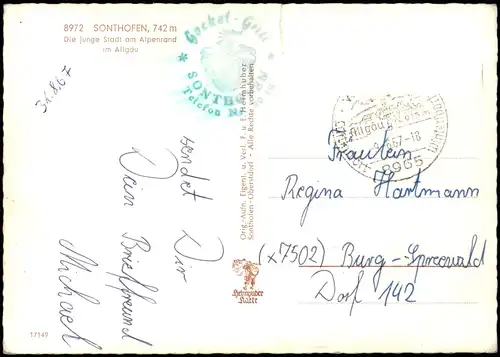 8972 SONTHOFEN, 742 m
Die junge Stadt am Alpenrand
im Allgäu
* Gockel-Grill *
SONTH
Telefon
31.8.67
sendet Dir
Dein Brieffreund
Michael
Orig.-Aufn. Eigent. u. Verl. F. u. E. Heimhuber
Sonthofen-Oberstdorf - Alle Rechte vorbehalten
Allgäu
67-18
8965
Fräulein
Regina Hartmann
(x7502) Burg-Spreewald
Dorf 142
Heimhuber
Karte
17149